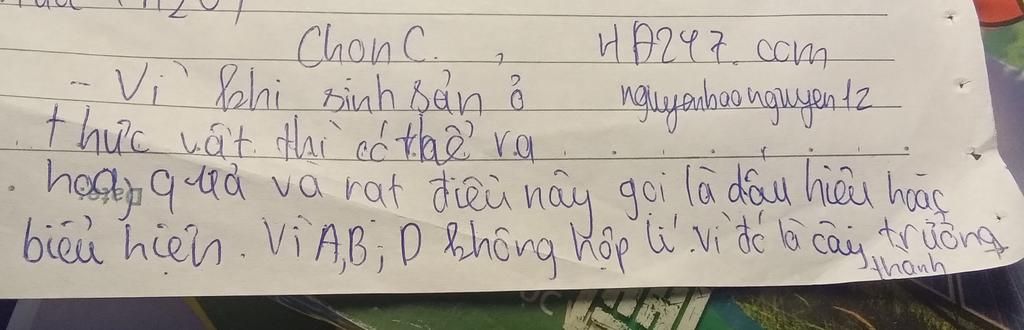 Chọn C. , HD247.com
- Vì khi sinh sản ở nguyenhaonguyen12
thực vật thì có thể ra
hoa, quả và rat điều này gọi là dấu hiệu hoặc
biểu hiện. Vì A,B; D không hợp lí. vì đó là cây trưởng
thành